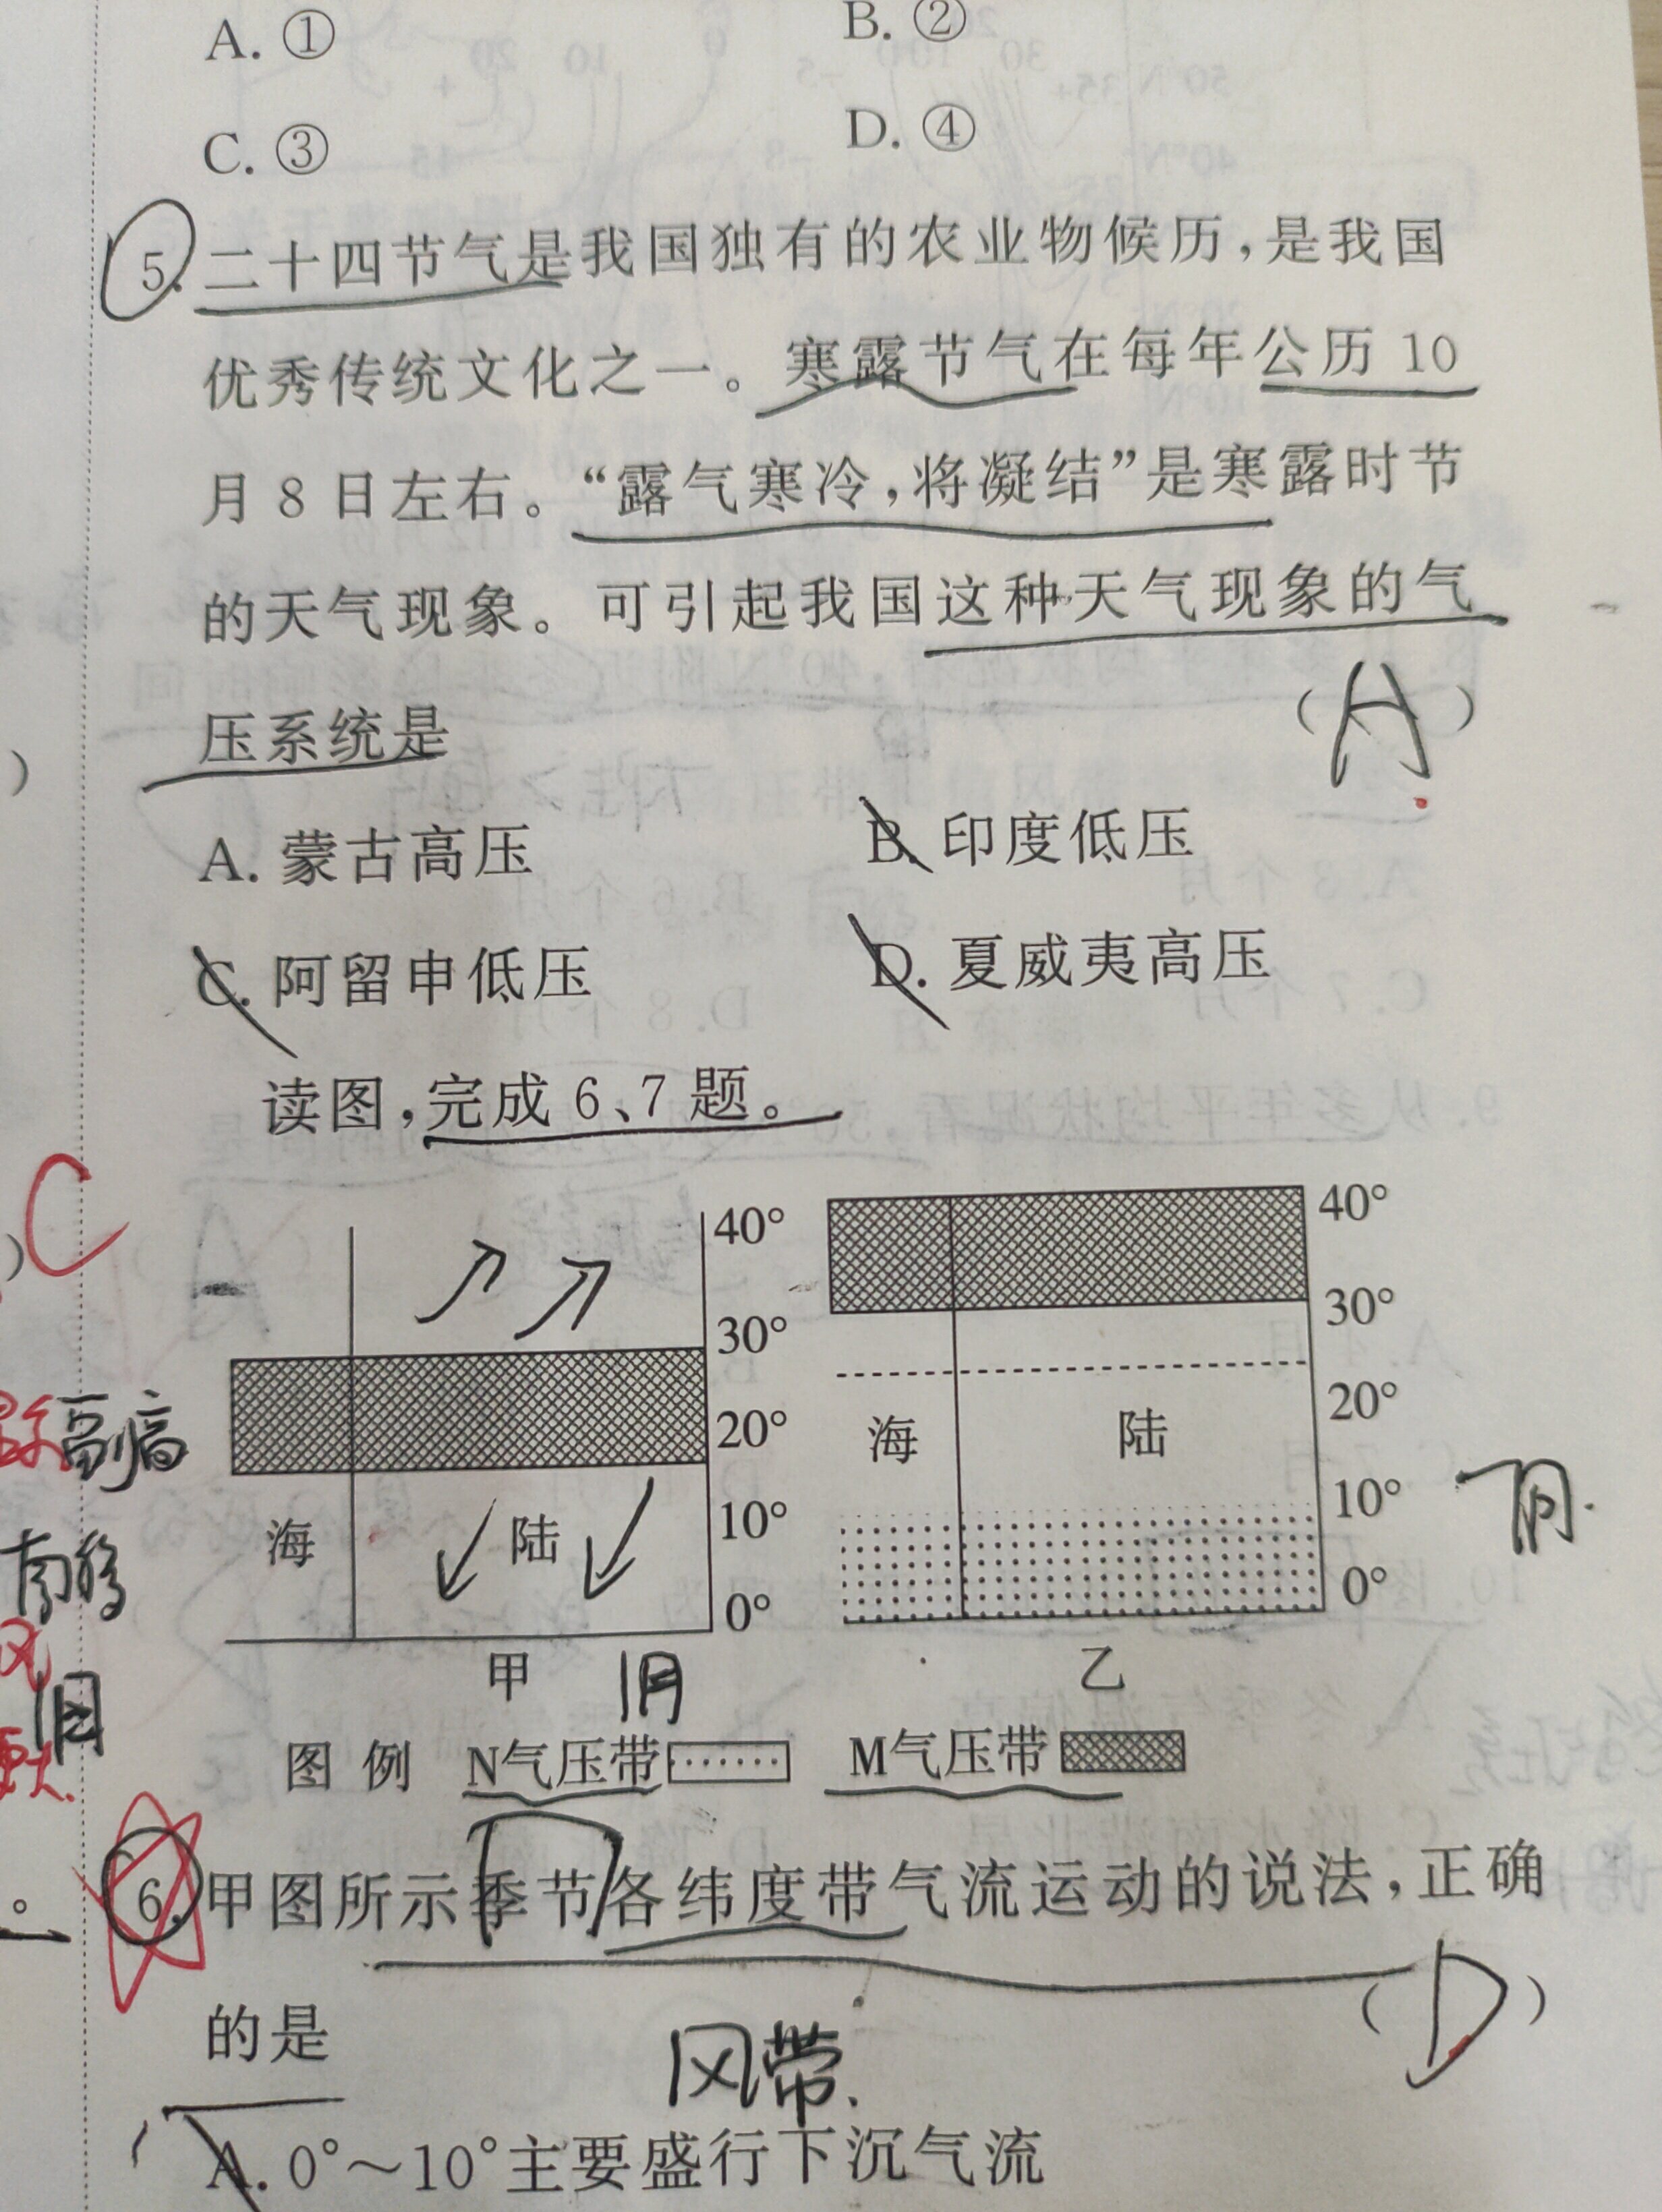 A. ① B. ②
C. ③ D. ④
5. 二十四节气是我国独有的农业物候历,是我国
优秀传统文化之一。寒露节气在每年公历 10
月 8 日左右。“露气寒冷,将凝结”是寒露时节
的天气现象。可引起我国这种天气现象的气
压系统是 ( A )
A. 蒙古高压 B. 印度低压
C. 阿留申低压 D. 夏威夷高压
读图,完成 6、7 题。
C
40° 40°
30° 30°
20° 20°
10° 10°
0° 0°
海 陆 海 陆
副高
南移
1月
7月
甲 1月 乙
图例 N气压带 M气压带
6. 甲图所示季节各纬度带气流运动的说法,正确
的是 ( D )
风带.
A. 0°～10°主要盛行下沉气流